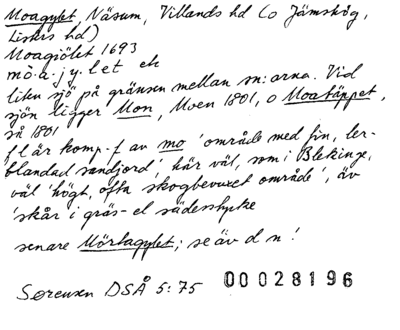 Moagylet, Näsum, Villands hd (o Jämshög,
Listers hd)
Moagiölet 1693
mo.a-j.y.let eh
liten sjö på gränsen mellan sn:arna. Vid
sjön ligger Mon, Moen 1801, o Moatäppet,
så 1801
fl är komp.-f av mo 'område med fin, ler-
blandad sandjord' här väl, som i Blekinge,
väl 'högt, ofta skogbevuxet område', äv
'skår i gräs- el sädesstycke
senare Mörtagylet; se äv d n!
Sørensen DSÅ 5:75 00028196